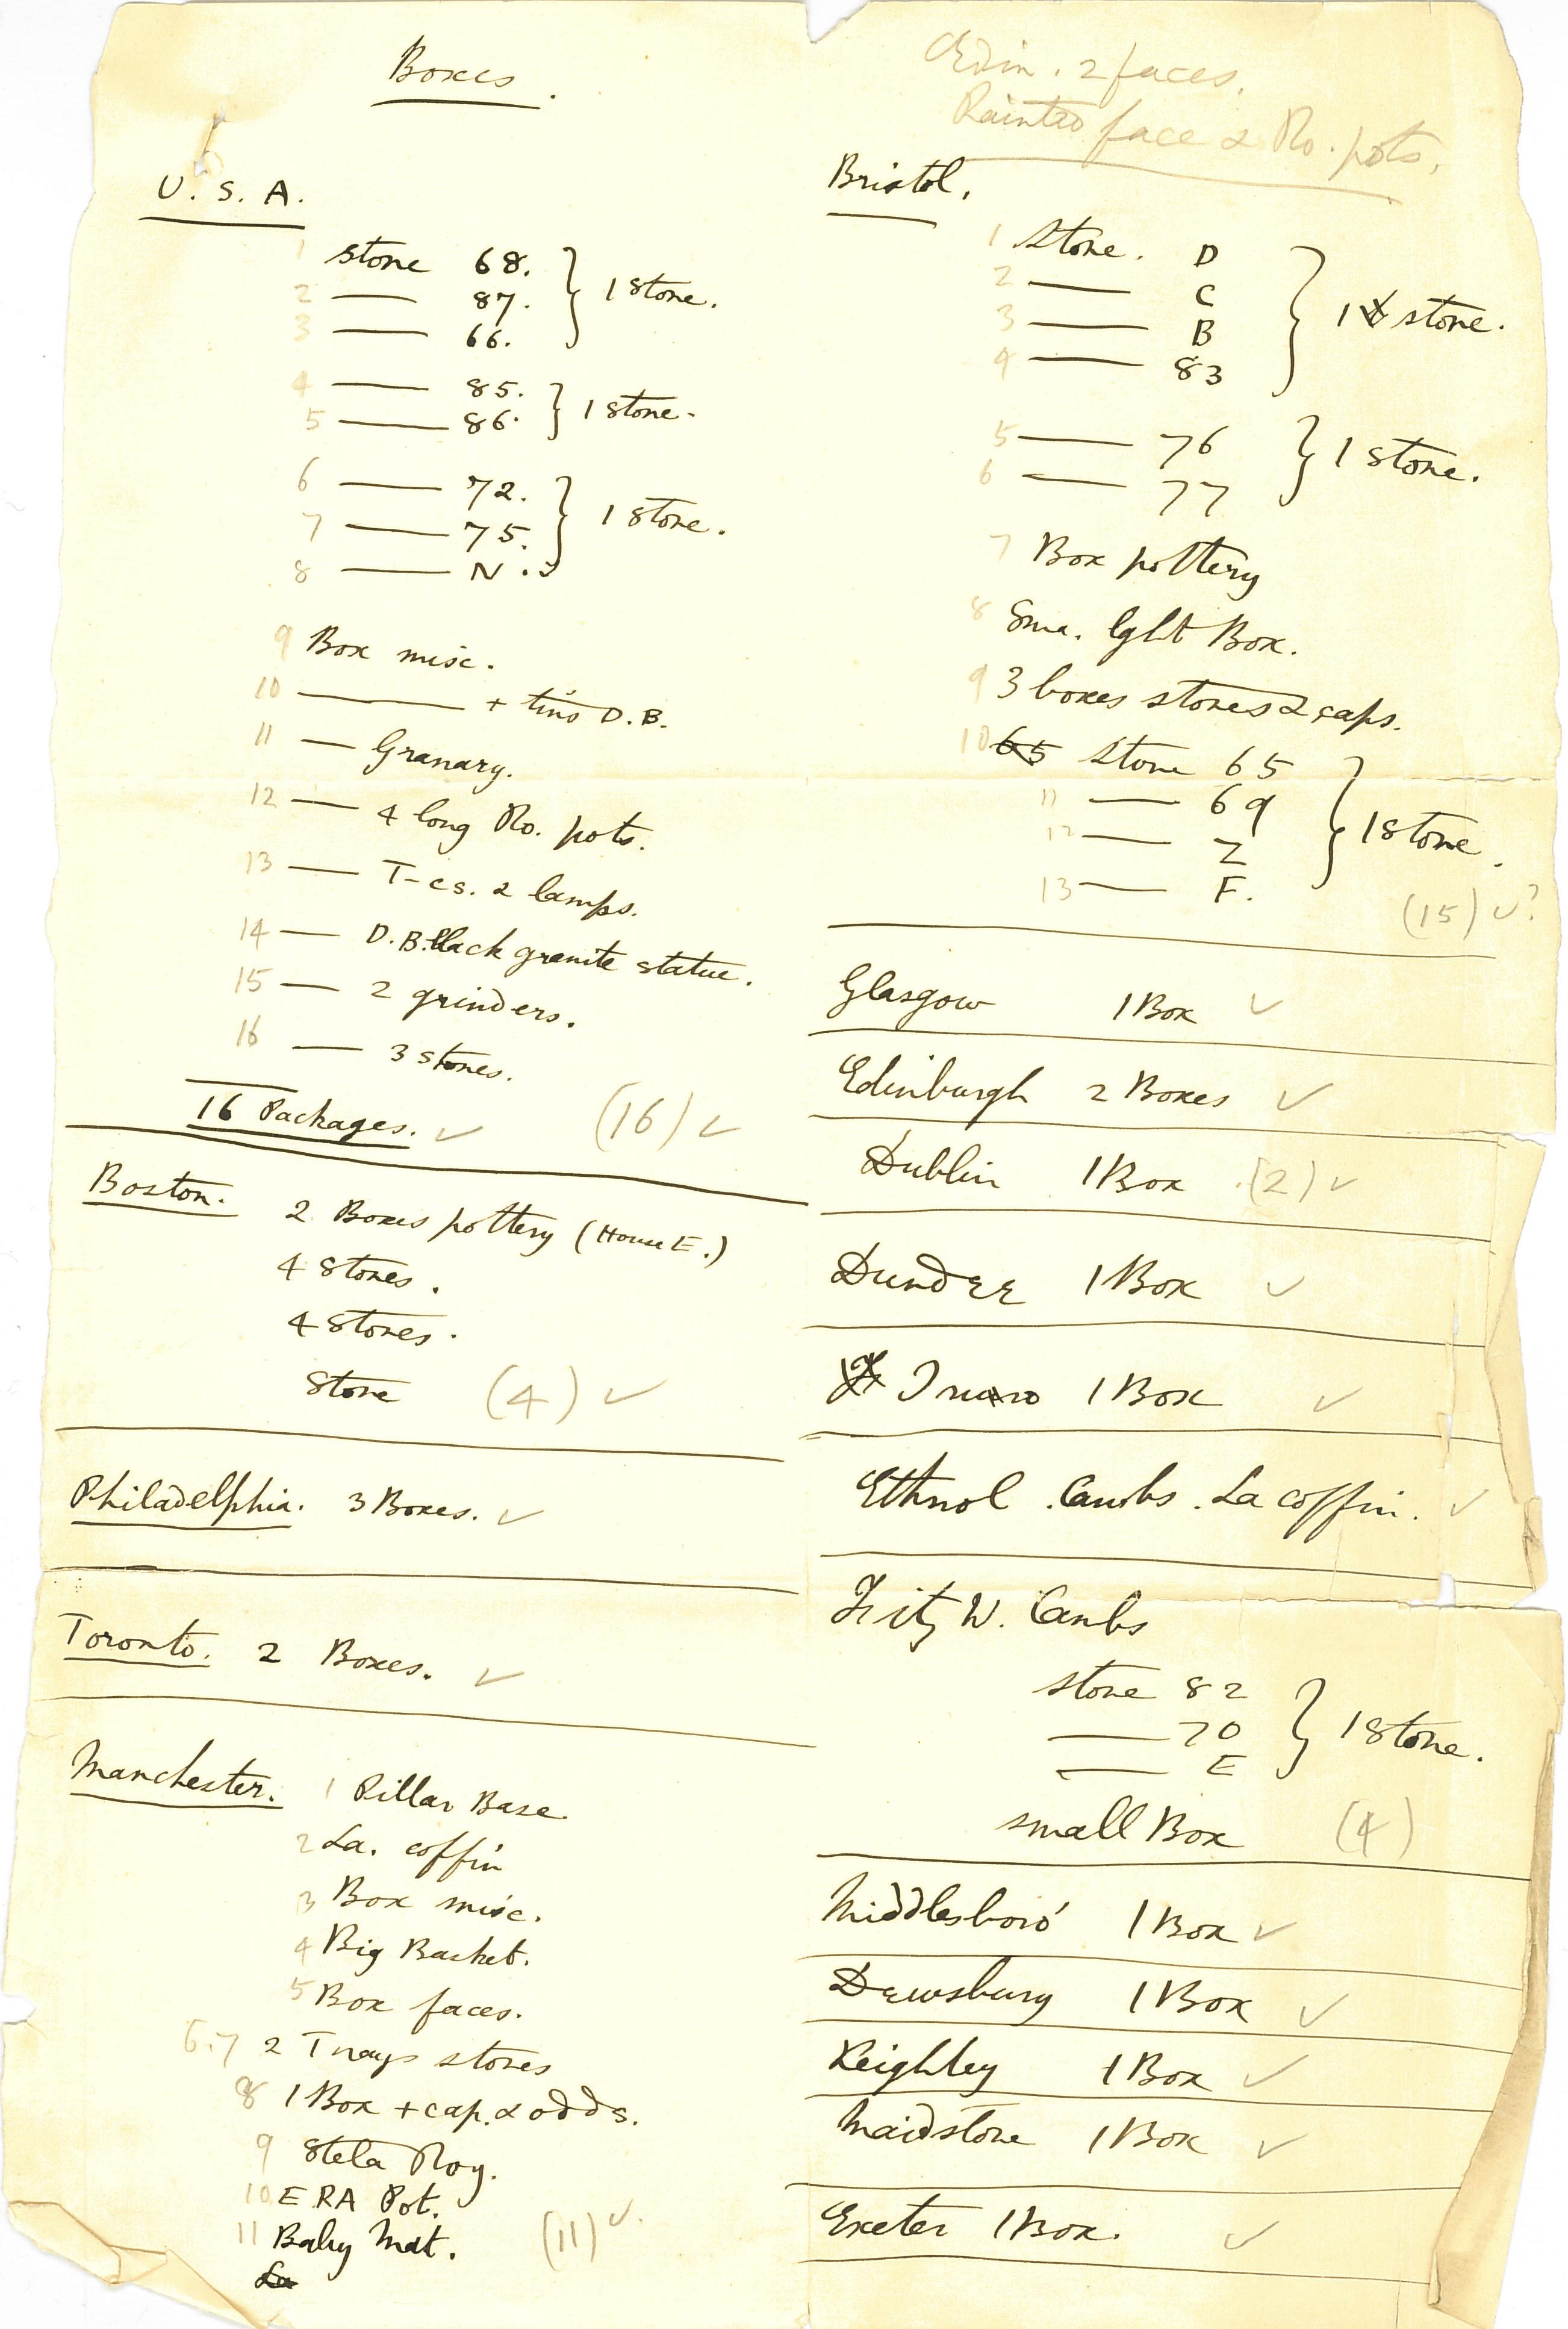 Boxes.
U. S. A.
1 stone 68. } 1 stone.
2 —— 87.
3 —— 66.
4 —— 85. } 1 stone.
5 —— 86.
6 —— 72. } 1 stone.
7 —— 75.
8 —— N.
9 Box misc.
10 —— + tins D.B.
11 — Granary.
12 — 4 long Ro. pots.
13 — T-cs. 2 lamps.
14 — D.B. Black granite statue.
15 — 2 grinders.
16 — 3 stones.
16 Packages. ✓ (16) ✓
Boston. 2 Boxes pottery (House E.)
4 Stones.
4 Stones.
Stone (4) ✓
Philadelphia. 3 Boxes. ✓
Toronto. 2 Boxes. ✓
Manchester. 1 Pillar Base.
2 La. coffin
3 Box misc.
4 Big Basket.
5 Box faces.
6.7 2 Trays stones
8 1 Box + cap. & odds.
9 Stela Roy.
10 ERA Pot.
11 Baby Mat. (11) ✓
La
Edin. 2 faces.
Painted face & Ro. pots.
Bristol.
1 Stone. D } 1 stone.
2 —— C
3 —— B
4 —— 83
5 —— 76 } 1 stone.
6 —— 77
7 Box pottery
8 Sma. lght Box.
9 3 boxes stones & caps.
10 65 Stone 65 } 1 Stone.
11 —— 69
12 —— Z
13 —— F.
(15) ✓?
Glasgow 1 Box ✓
Edinburgh 2 Boxes ✓
Dublin 1 Box (2) ✓
Dundee 1 Box ✓
Truro 1 Box ✓
Ethnol. Cambs. La coffin. ✓
Fitz W. Cambs
stone 82 } 1 Stone.
—— 70
—— E
small Box (4)
Middlesboro' 1 Box ✓
Dewsbury 1 Box ✓
Keighley 1 Box ✓
Maidstone 1 Box ✓
Exeter 1 Box. ✓